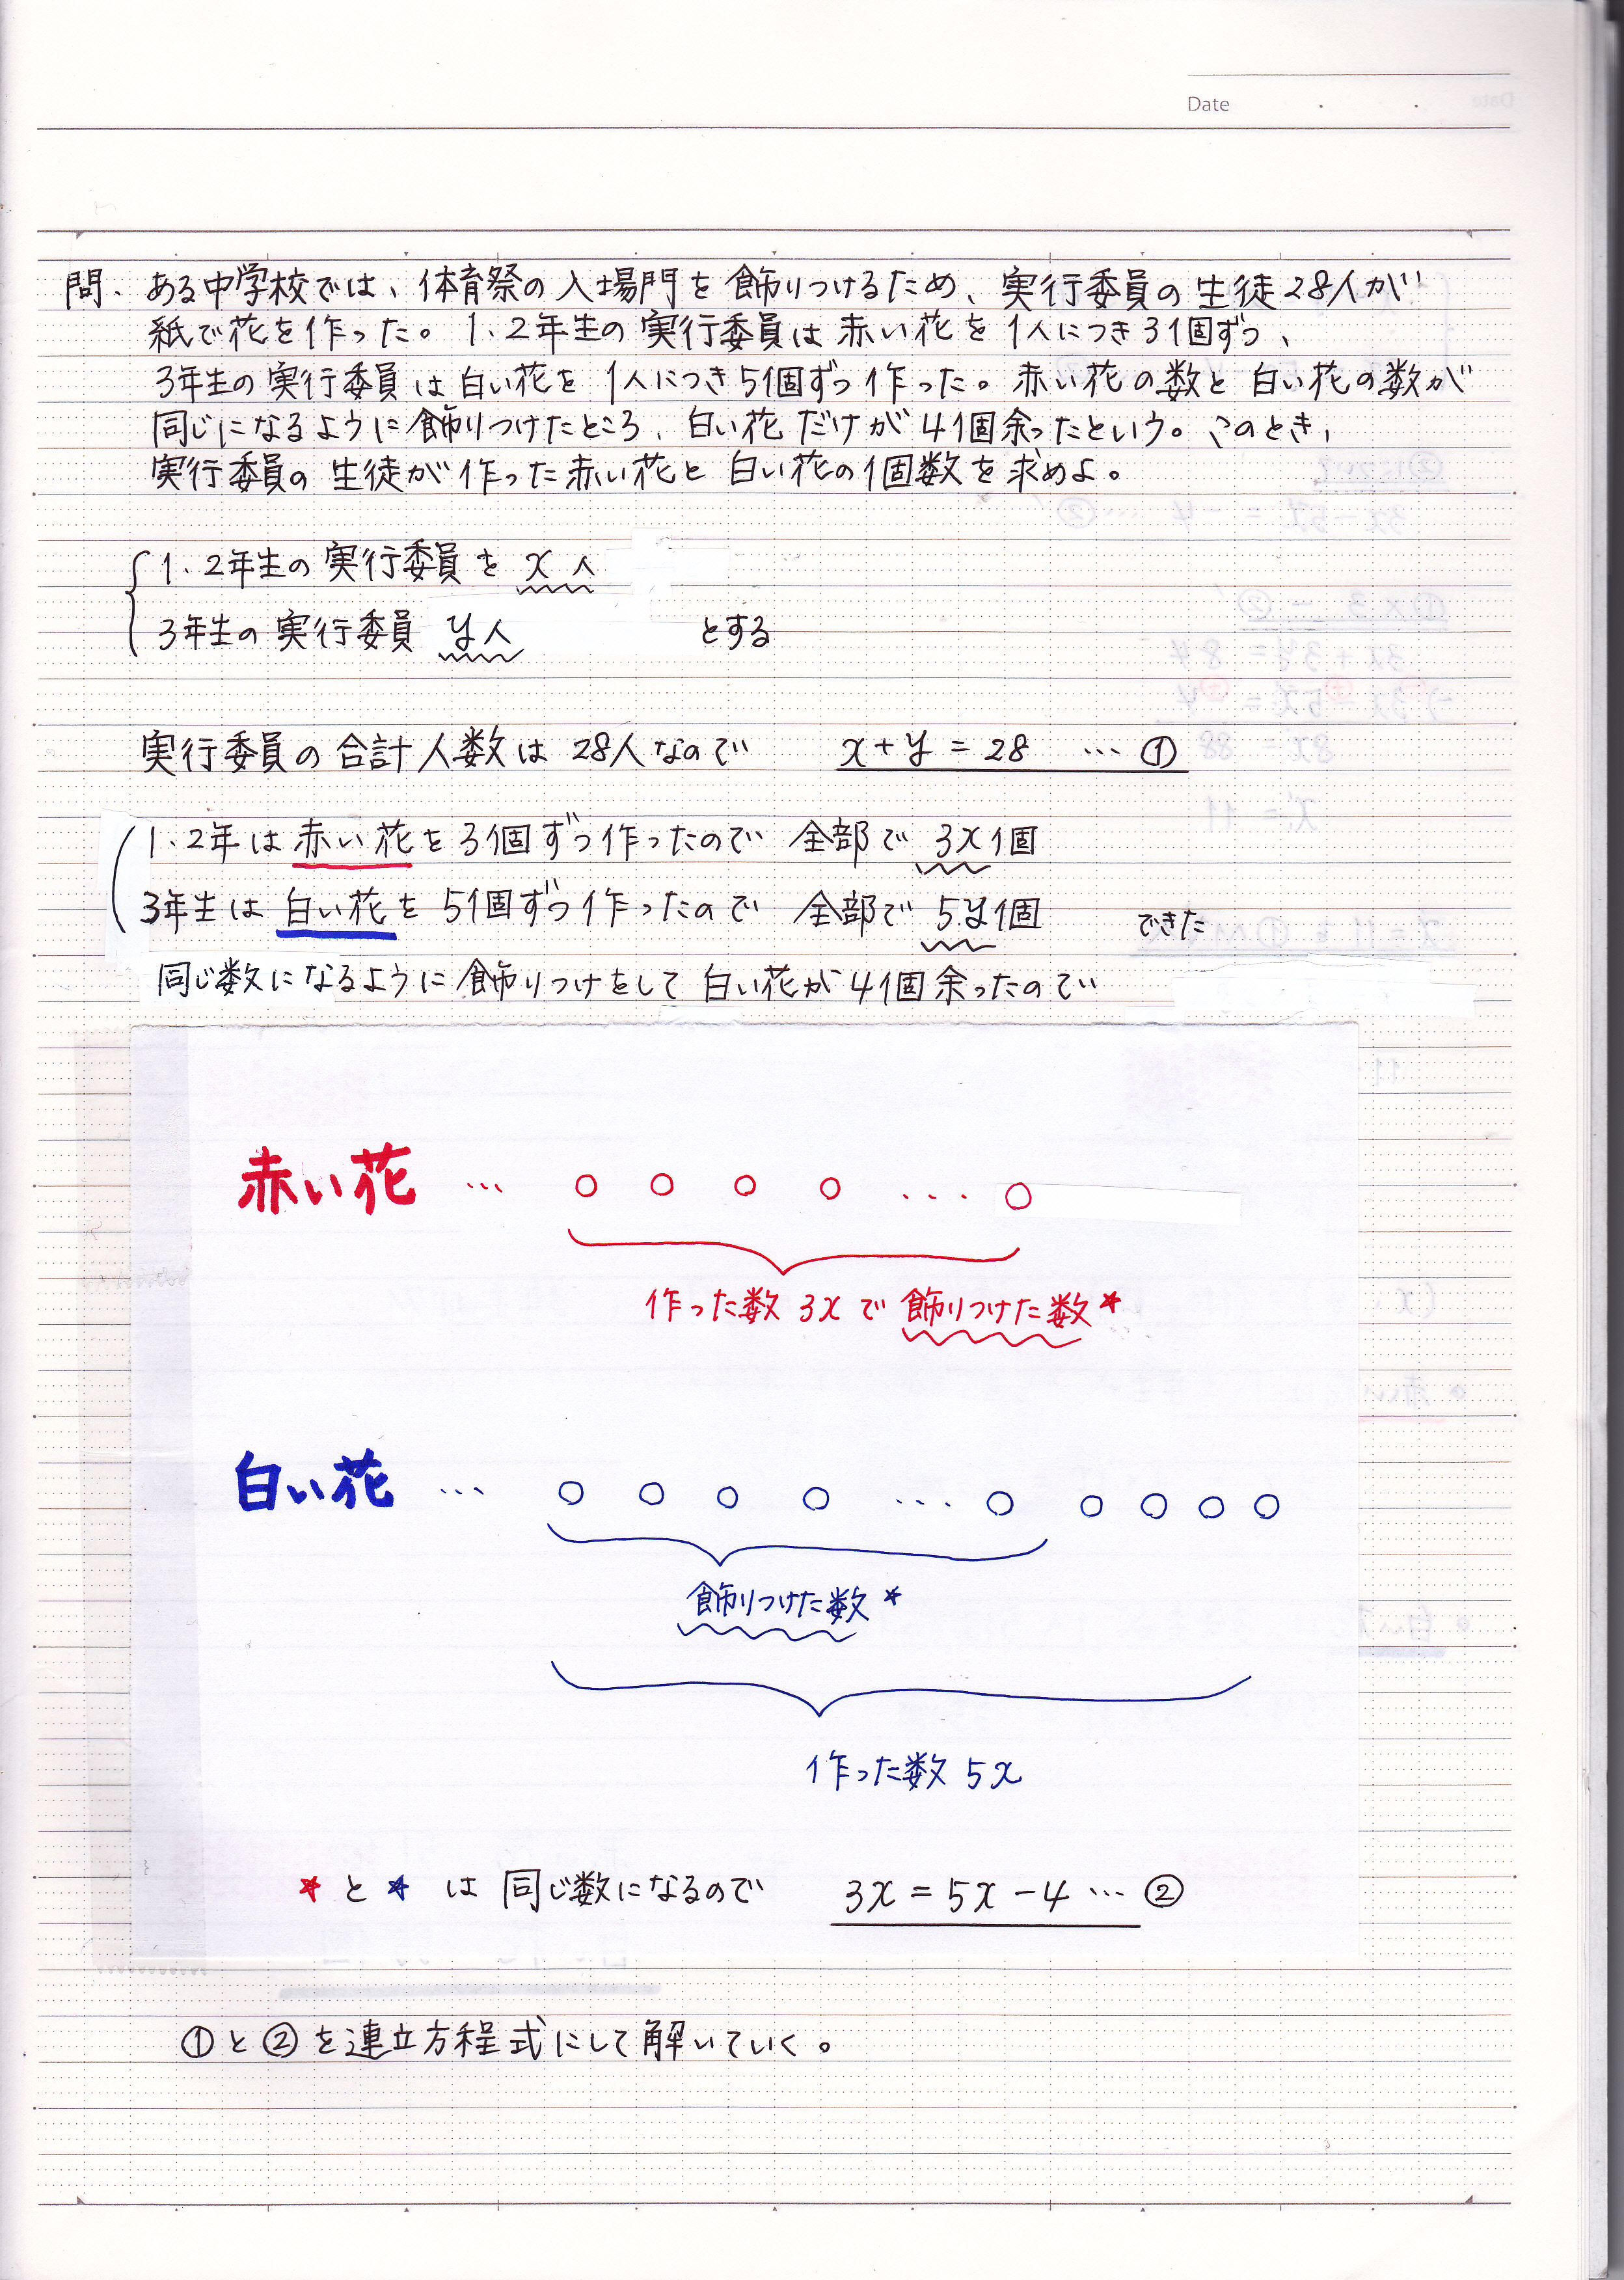 Date
問. ある中学校では、体育祭の入場門を飾りつけるため、実行委員の生徒28人が
紙で花を作った。1.2年生の実行委員は赤い花を1人につき3個ずつ、
3年生の実行委員は白い花を1人につき5個ずつ作った。赤い花の数と白い花の数が
同じになるように飾りつけたところ、白い花だけが4個余ったという。このとき、
実行委員の生徒が作った赤い花と白い花の個数を求めよ。
1.2年生の実行委員を x人
3年生の実行委員 y人 とする
実行委員の合計人数は28人なので x+y=28 … ①
1.2年は赤い花を3個ずつ作ったので 全部で 3x個
3年生は白い花を5個ずつ作ったので 全部で 5y個 できた
同じ数になるように飾りつけをして白い花が4個余ったので
赤い花 … ○ ○ ○ ○ … ○
作った数 3x で 飾りつけた数★
白い花 … ○ ○ ○ ○ … ○ ○ ○ ○ ○
飾りつけた数★
作った数 5x
★と★は同じ数になるので 3x=5x-4 … ②
①と②を連立方程式にして解いていく。